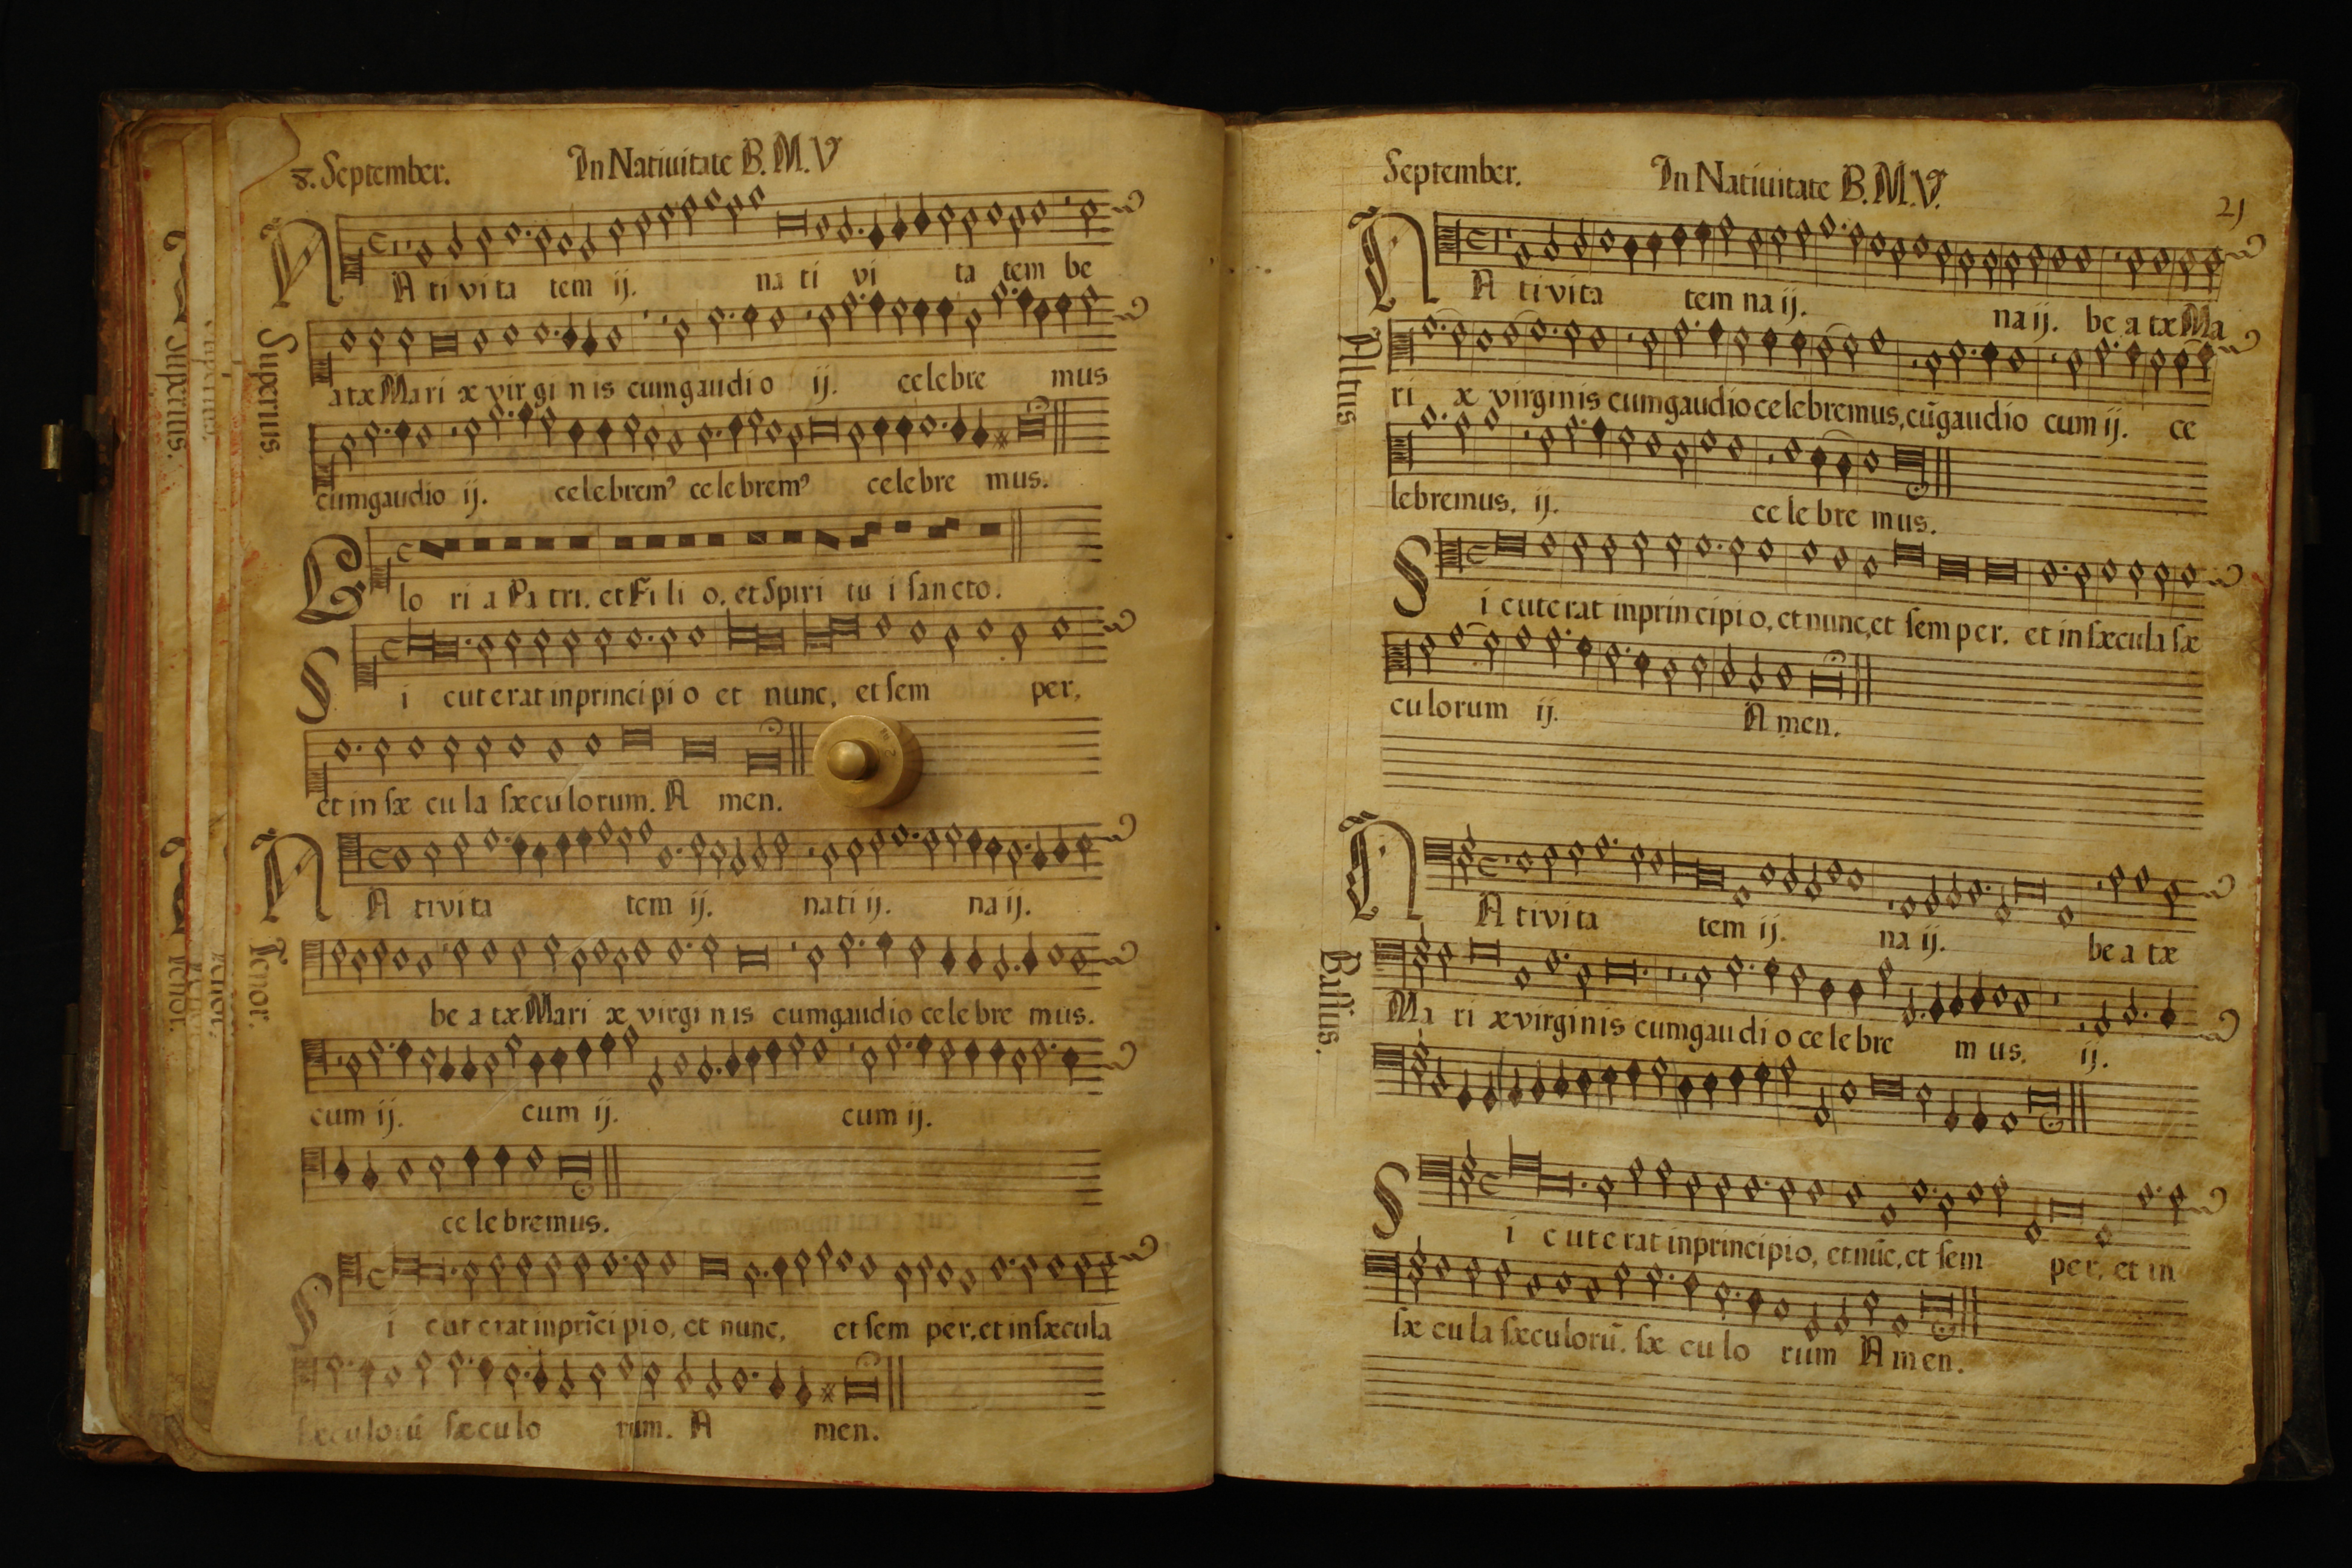 8. September. In Nativitate B. M. V
NAtivita tem ij. na ti vi ta tem be
Superius.
atæ Mari æ virginis cum gaudio ij. celebre mus
cum gaudio ij. celebrem⁹ celebrem⁹ celebre mus.
Glo ri a Pa tri. et Fi li o. et Spiri tu i sancto.
Si cut erat in principi o et nunc, et sem per,
et in sæ cu la sæcu lorum. A men.
NA tivita tem ij. nati ij. na ij.
Tenor.
be a tæ Mari æ virgi nis cum gaudio cele bre mus.
cum ij. cum ij. cum ij.
ce le bremus.
Si cut erat in prīcipio, et nunc, et sem per, et in sæcula
sæculorū sæculo rum. A men.
September. In Nativitate B. M. V. 21
NA tivita tem na ij. na ij. be a tæ Ma
Altus
ri æ virginis cum gaudio ce lebremus, cū gaudio cum ij. ce
lebremus, ij. ce le bre mus.
Si cut erat in principi o, et nunc, et sem per. et in sæcula sæ
culorum ij. A men.
NA tivita tem ij. na ij. be a tæ
Bassus.
Ma ri æ virginis cum gau di o ce le bre mus. ij.
Si cut e rat in principio, et nūc, et sem per, et in
sæ cu la sæculorū. sæ cu lo rum A men.
Superius.
Tenor.